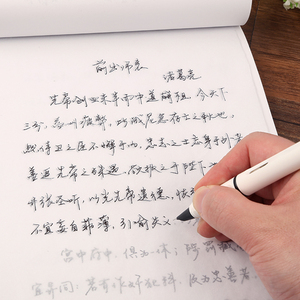 前出师表
诸葛亮
先帝创业未半而中道崩殂，今天下
三分，益州疲弊，此诚危急存亡之秋也。
然侍卫之臣不懈于内，忠志之士忘身于外者
盖追先帝之殊遇，欲报之于陛下也
开张圣听，以光先帝遗德，恢
不宜妄自菲薄，引喻失义
宫中府中，俱为一体；陟罚臧
宜异同：若有作奸犯科，及为忠善者